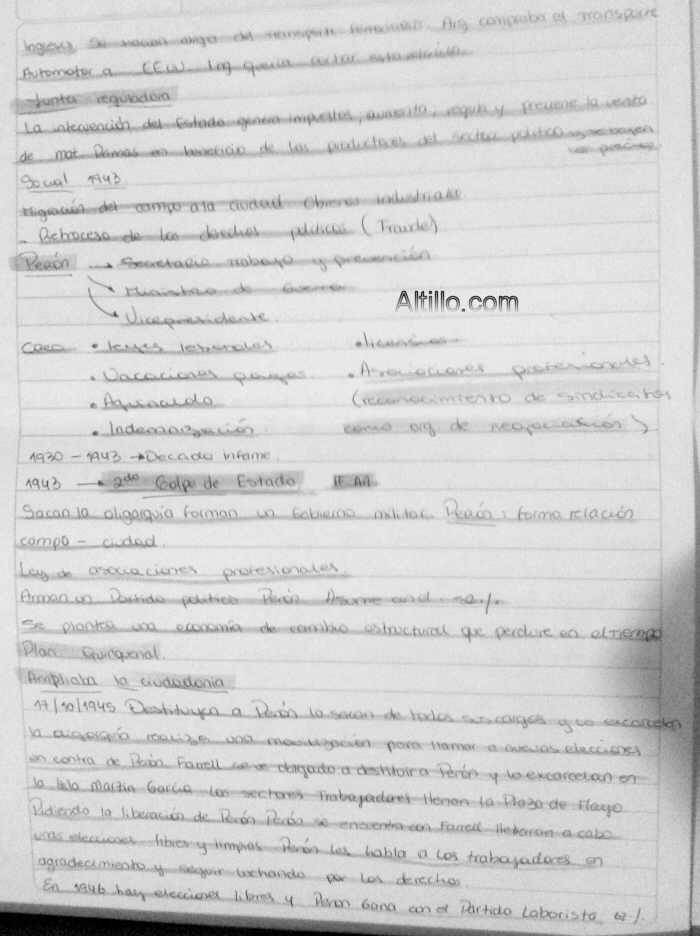 Ingleses se hacian cargo del transporte ferroviario. Arg compraba el transporte
Automotor a EEUU. Ing queria cortar esta relación.
-Junta reguladora
La intervención del Estado genera impuestos, aumenta, regula y previene la venta
de mat. Primas en beneficio de los productores del sector politico
los precios
Social 1943
Migración del campo a la ciudad Obreros industriales
- Retroceso de los derechos politicos (Fraude)
Perón → Secretario trabajo y prevención
→ Ministro de Guerra
→ Vicepresidente.
Altillo.com
Crea • Leyes laborales • licencias
• Vacaciones pagas • Asociaciones profesionales.
• Aguinaldo (reconocimiento de sindicatos
• Indemnización como org de negociación)
1930 - 1943 → Decada infame.
1943 → 2do Golpe de Estado
Sacan la oligarquia forman un Gobierno militar. Perón: forma relación
campo - ciudad.
Ley de asociaciones profesionales.
Arman un Partido politico Perón Asume
Se plantea una economía de cambio estructural que perdure en el tiempo
Plan Quinquenal.
Ampliaba la ciudadania
17/10/1945 Destituyen a Perón lo sacan de todos sus cargos y lo excarcelan
la oligarquia realiza una movilización para llamar a nuevas elecciones
en contra de Perón. Farrell se ve obligado a destituir a Perón y lo excarcelan en
la Isla Martin Garcia los sectores trabajadores llenan la Plaza de Mayo
Pidiendo la liberación de Perón Perón se encuentra con Farrell llevaran a cabo
unas elecciones libres y limpias Perón les habla a los trabajadores en
agradecimiento y seguir luchando por los derechos.
En 1946 hay elecciones libres y Peron Gana con el Partido Laborista